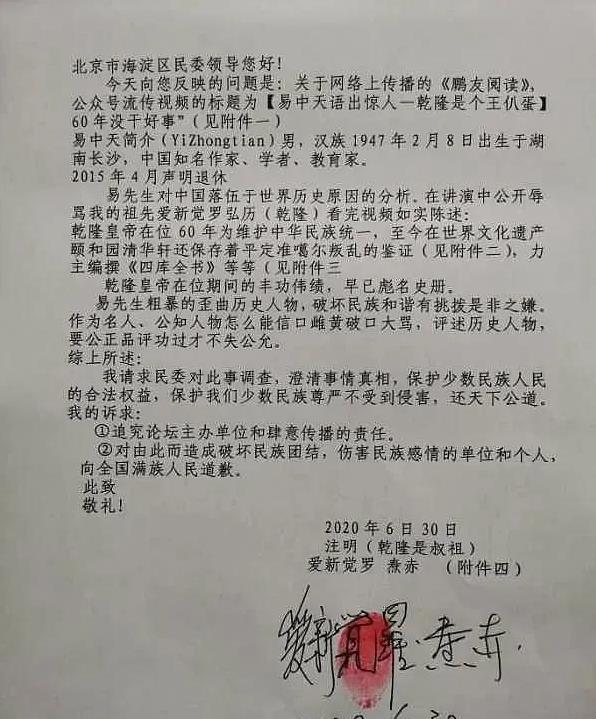 北京市海淀区民委领导您好!
今天向您反映的问题是:关于网络上传播的《鹏友阅读》,
公众号流传视频的标题为【易中天语出惊人—乾隆是个王仈蛋】
60年没干好事”(见附件一)
易中天简介(YiZhongtian)男,汉族1947年2月8日出生于湖
南长沙,中国知名作家、学者、教育家。
2015年4月声明退休
易先生对中国落伍于世界历史原因的分析。在讲演中公开辱
骂我的祖先爱新觉罗弘历(乾隆)看完视频如实陈述:
乾隆皇帝在位60年为维护中华民族统一,至今在世界文化遗产
颐和园清华轩还保存着平定准噶尔叛乱的鉴证(见附件二),力
主编撰《四库全书》等等(见附件三
乾隆皇帝在位期间的丰功伟绩,早已彪名史册。
易先生粗暴的歪曲历史人物,破坏民族和谐有挑拨是非之嫌。
作为名人、公知人物怎么能信口雌黄破口大骂,评述历史人物,
要公正品评功过才不失公允。
综上所述:
我请求民委对此事调查,澄清事情真相,保护少数民族人民
的合法权益,保护我们少数民族尊严不受到侵害,还天下公道。
我的诉求:
①追究论坛主办单位和肆意传播的责任。
②对由此而造成破坏民族团结,伤害民族感情的单位和个人,
向全国满族人民道歉。
此致
敬礼!
2020年6日30日
注明(乾隆是叔祖)
爱新觉罗 焘赤 (附件四)
爱新觉罗·焘赤.